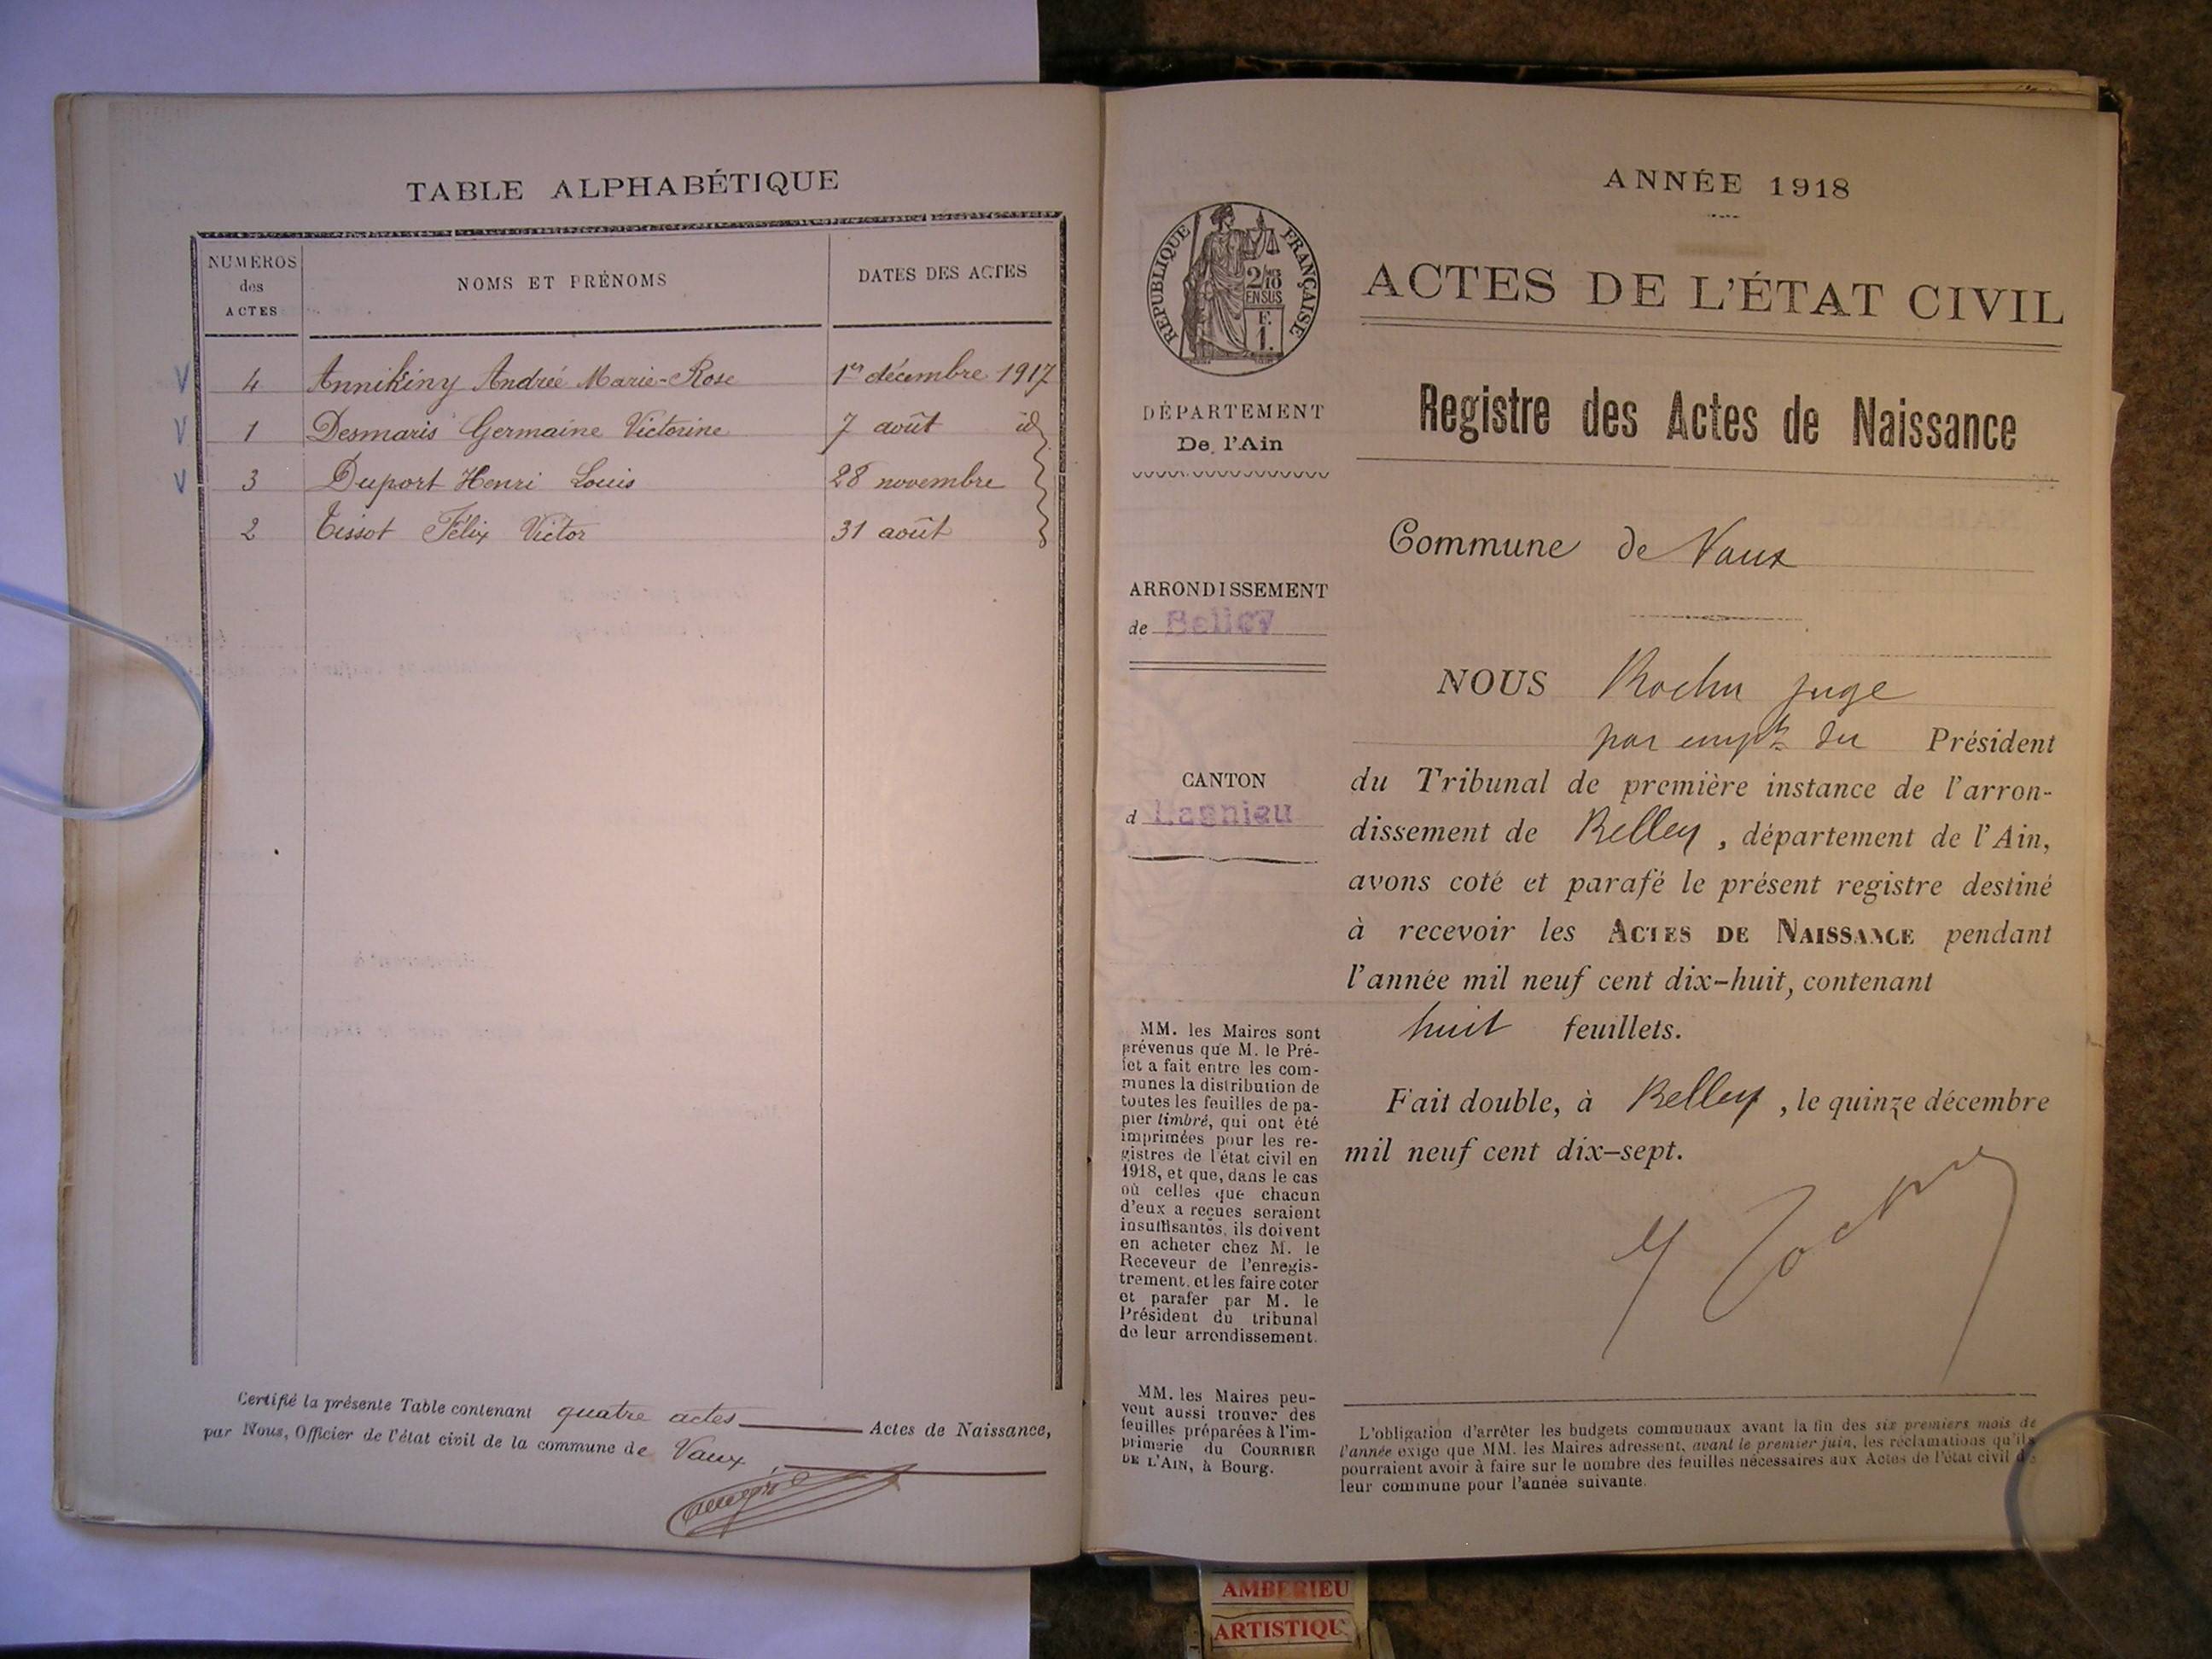 TABLE ALPHABÉTIQUE
NUMEROS
des
ACTES
NOMS ET PRÉNOMS
DATES DES ACTES
V 4 Annikiny Andrée Marie-Rose 1er décembre 1917
V 1 Desmaris Germaine Victorine 7 août id
V 3 Duport Henri Louis 28 novembre
2 Tissot Félix Victor 31 août
Certifié la présente Table contenant quatre actes Actes de Naissance,
par Nous, Officier de l'état civil de la commune de Vaux,
RÉPUBLIQUE FRANÇAISE
2/10
EN SUS
F.
1.
DÉPARTEMENT
De l'Ain
ARRONDISSEMENT
de Belley
CANTON
d Lagnieu
MM. les Maires sont
prévenus que M. le Pré-
fet a fait entre les com-
munes la distribution de
toutes les feuilles de pa-
pier timbré, qui ont été
imprimées pour les re-
gistres de l'état civil en
1918, et que, dans le cas
où celles que chacun
d'eux a reçues seraient
insuffisantes, ils doivent
en acheter chez M. le
Receveur de l'enregis-
trement, et les faire coter
et parafer par M. le
Président du tribunal
de leur arrondissement.
MM. les Maires peu-
vent aussi trouver des
feuilles préparées à l'im-
primerie du COURRIER
DE L'AIN, à Bourg.
ANNÉE 1918
ACTES DE L'ÉTAT CIVIL
Registre des Actes de Naissance
Commune de Vaux
NOUS juge
par empt du Président
du Tribunal de première instance de l'arron-
dissement de Belley, département de l'Ain,
avons coté et parafé le présent registre destiné
à recevoir les ACTES DE NAISSANCE pendant
l'année mil neuf cent dix-huit, contenant
huit feuillets.
Fait double, à Belley, le quinze décembre
mil neuf cent dix-sept.
L'obligation d'arrêter les budgets communaux avant la fin des six premiers mois de
l'année exige que MM. les Maires adressent, avant le premier juin, les réclamations qu'ils
pourraient avoir à faire sur le nombre des feuilles nécessaires aux Actes de l'état civil de
leur commune pour l'année suivante.
AMBERIEU
ARTISTIQU